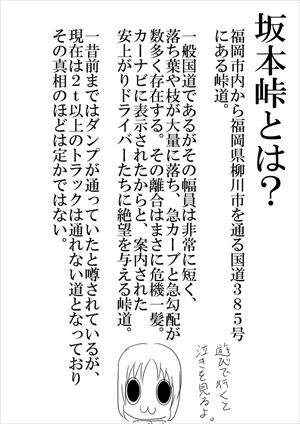 坂本峠とは？
福岡市内から福岡県柳川市を通る国道３８５号
にある峠道。
一般国道であるがその幅員は非常に短く、
落ち葉や枝が大量に落ち、急カーブと急勾配が
数多く存在する。その離合はまさに危機一髪。
カーナビに表示されたからと、案内された
安上がりドライバーたちに絶望を与える峠道。
一昔前まではダンプが通っていたと噂されているが、
現在は２ｔ以上のトラックは通れない道となっており
その真相のほどは定かではない。
遊びで行くと
泣きを見るよ。